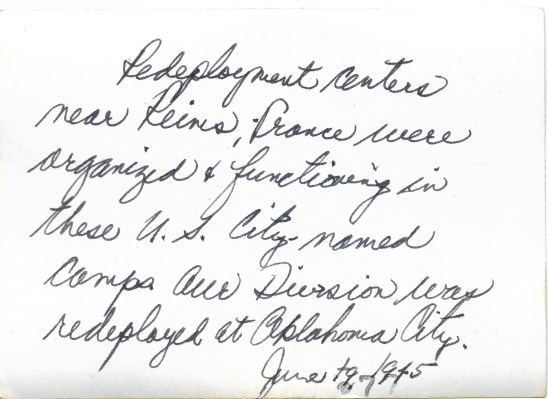 Redeployment centers
near Reims, France were
organized & functioning in
these U.S. City-named
camps Our Division was
redeployed at Oklahoma City.
June 19, 1945